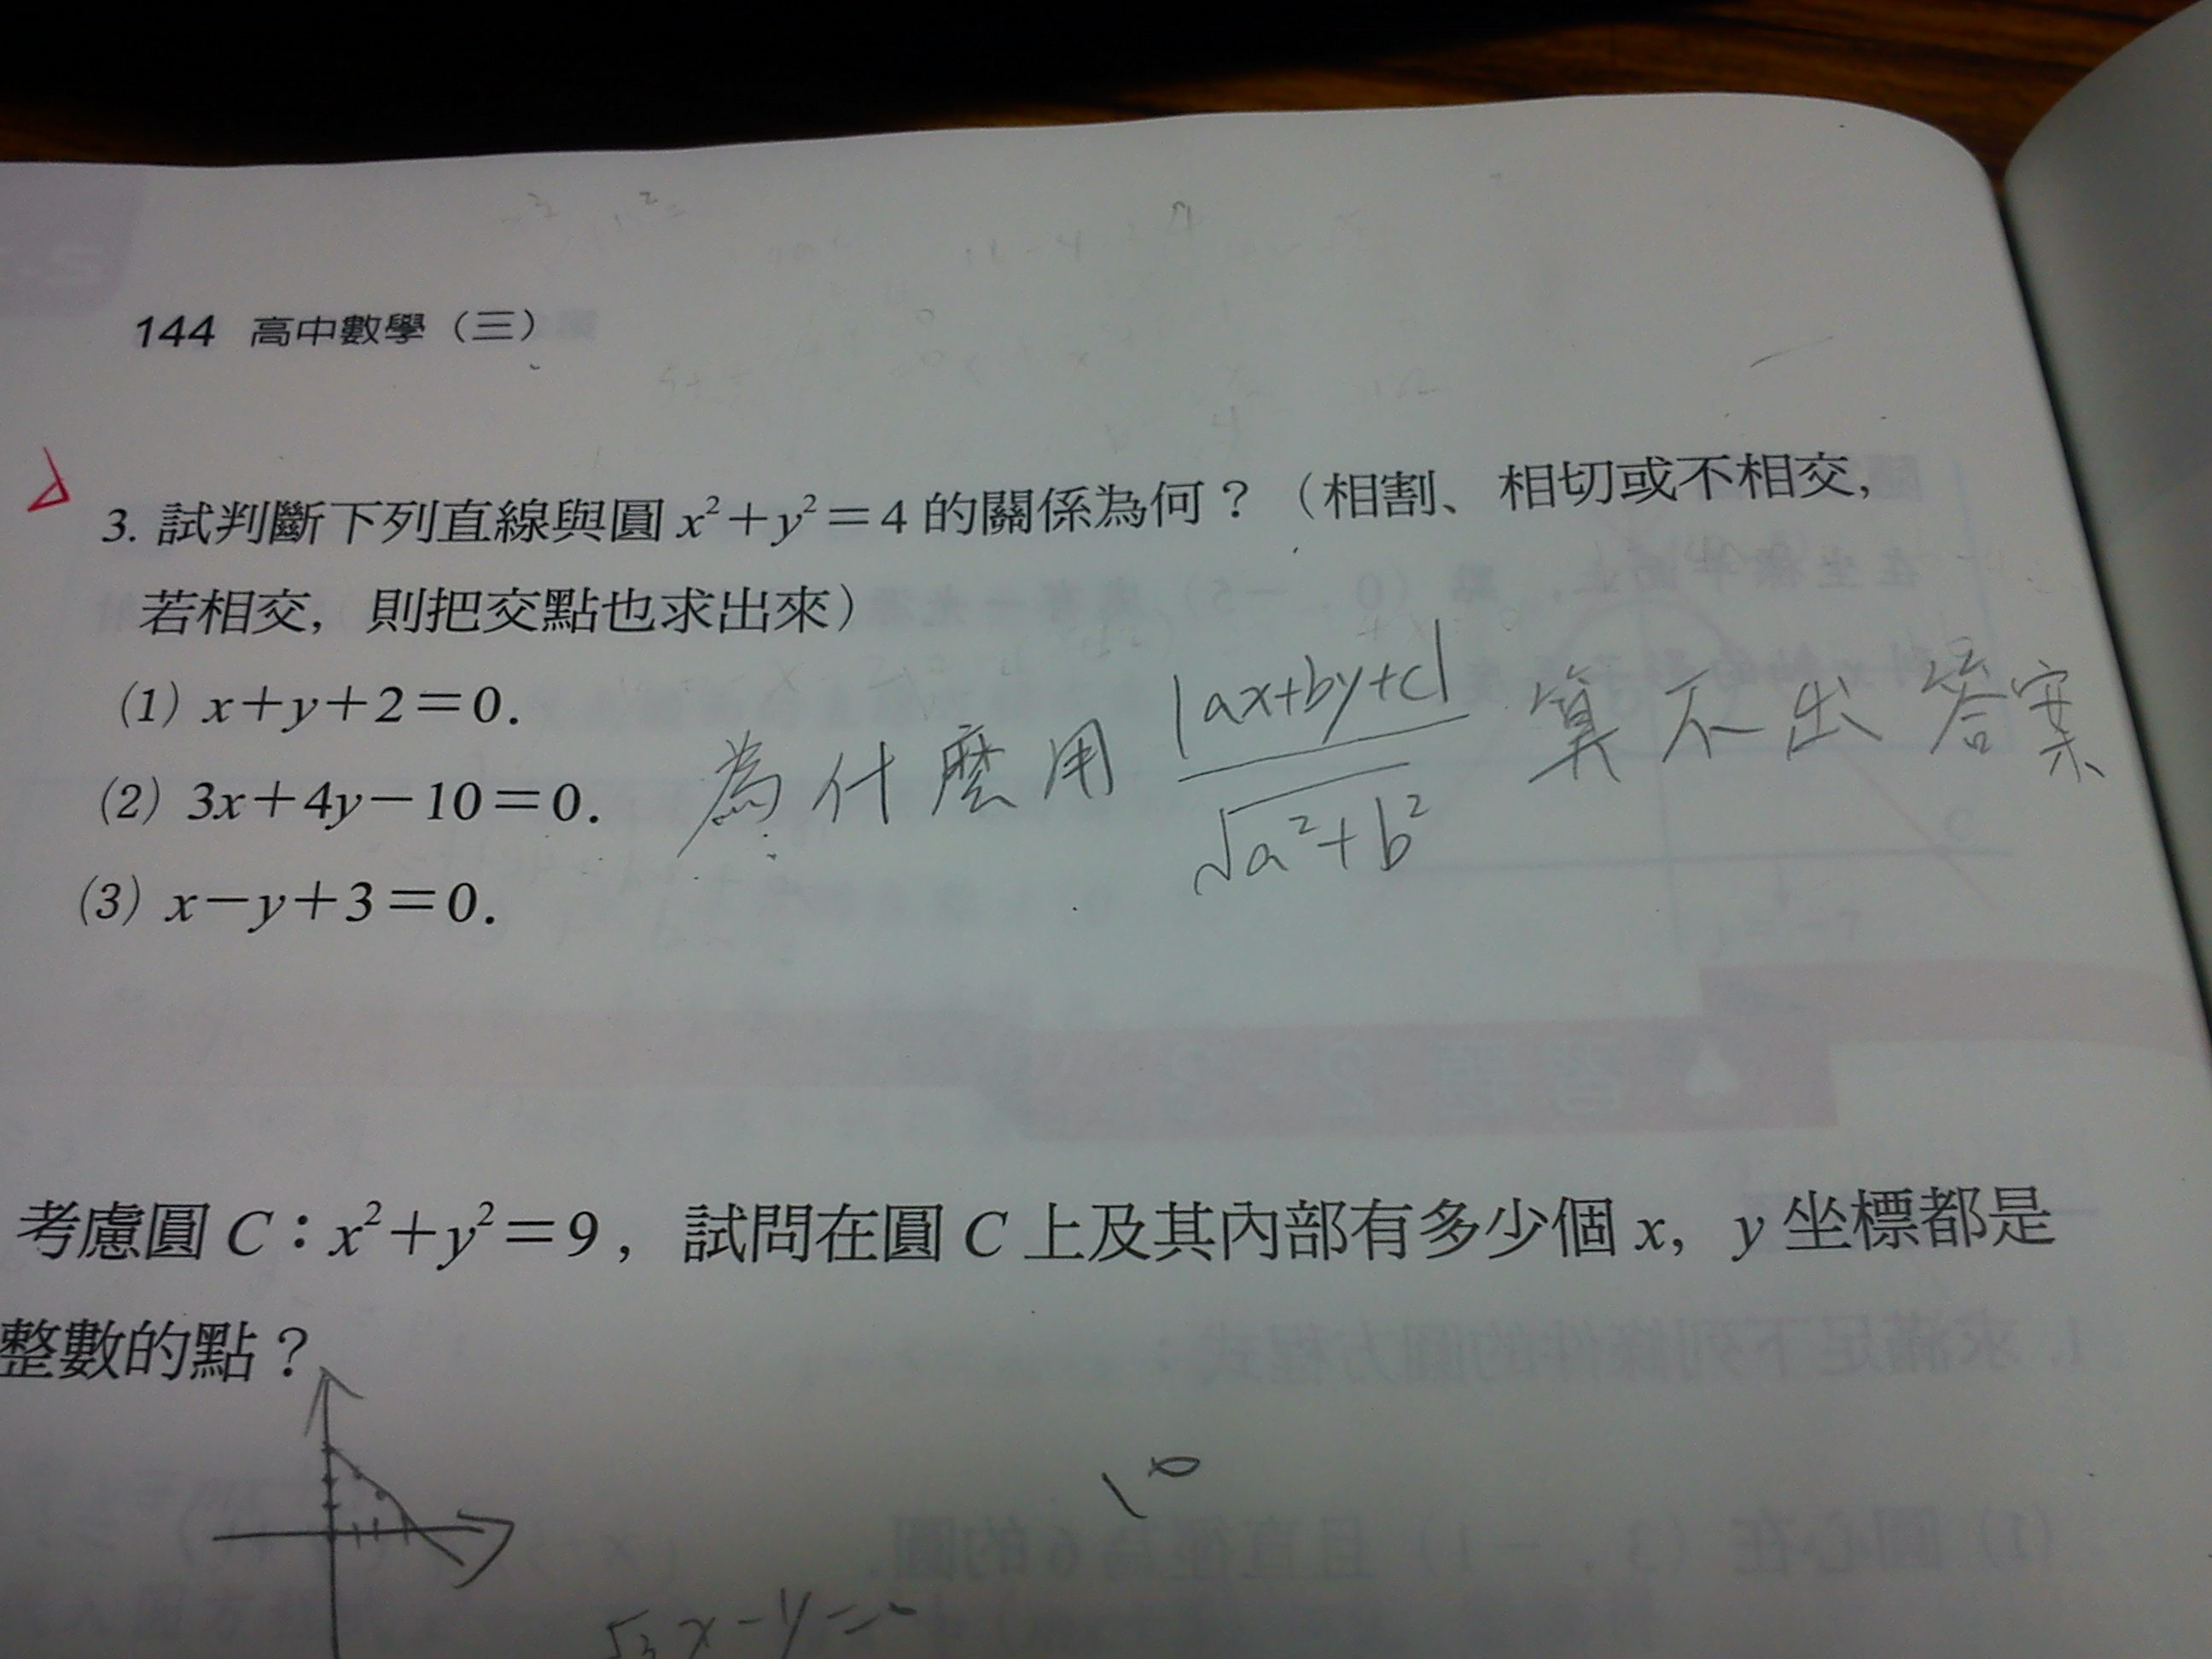 144 高中數學（三）
3. 試判斷下列直線與圓 x²+y²=4 的關係為何？（相割、相切或不相交，
若相交，則把交點也求出來）
(1) x+y+2=0.
(2) 3x+4y−10=0.
為什麼用 |ax+by+c| / √a²+b² 算不出答案
(3) x−y+3=0.
考慮圓 C：x²+y²=9，試問在圓 C 上及其內部有多少個 x, y 坐標都是
整數的點？
√3 x−y=0